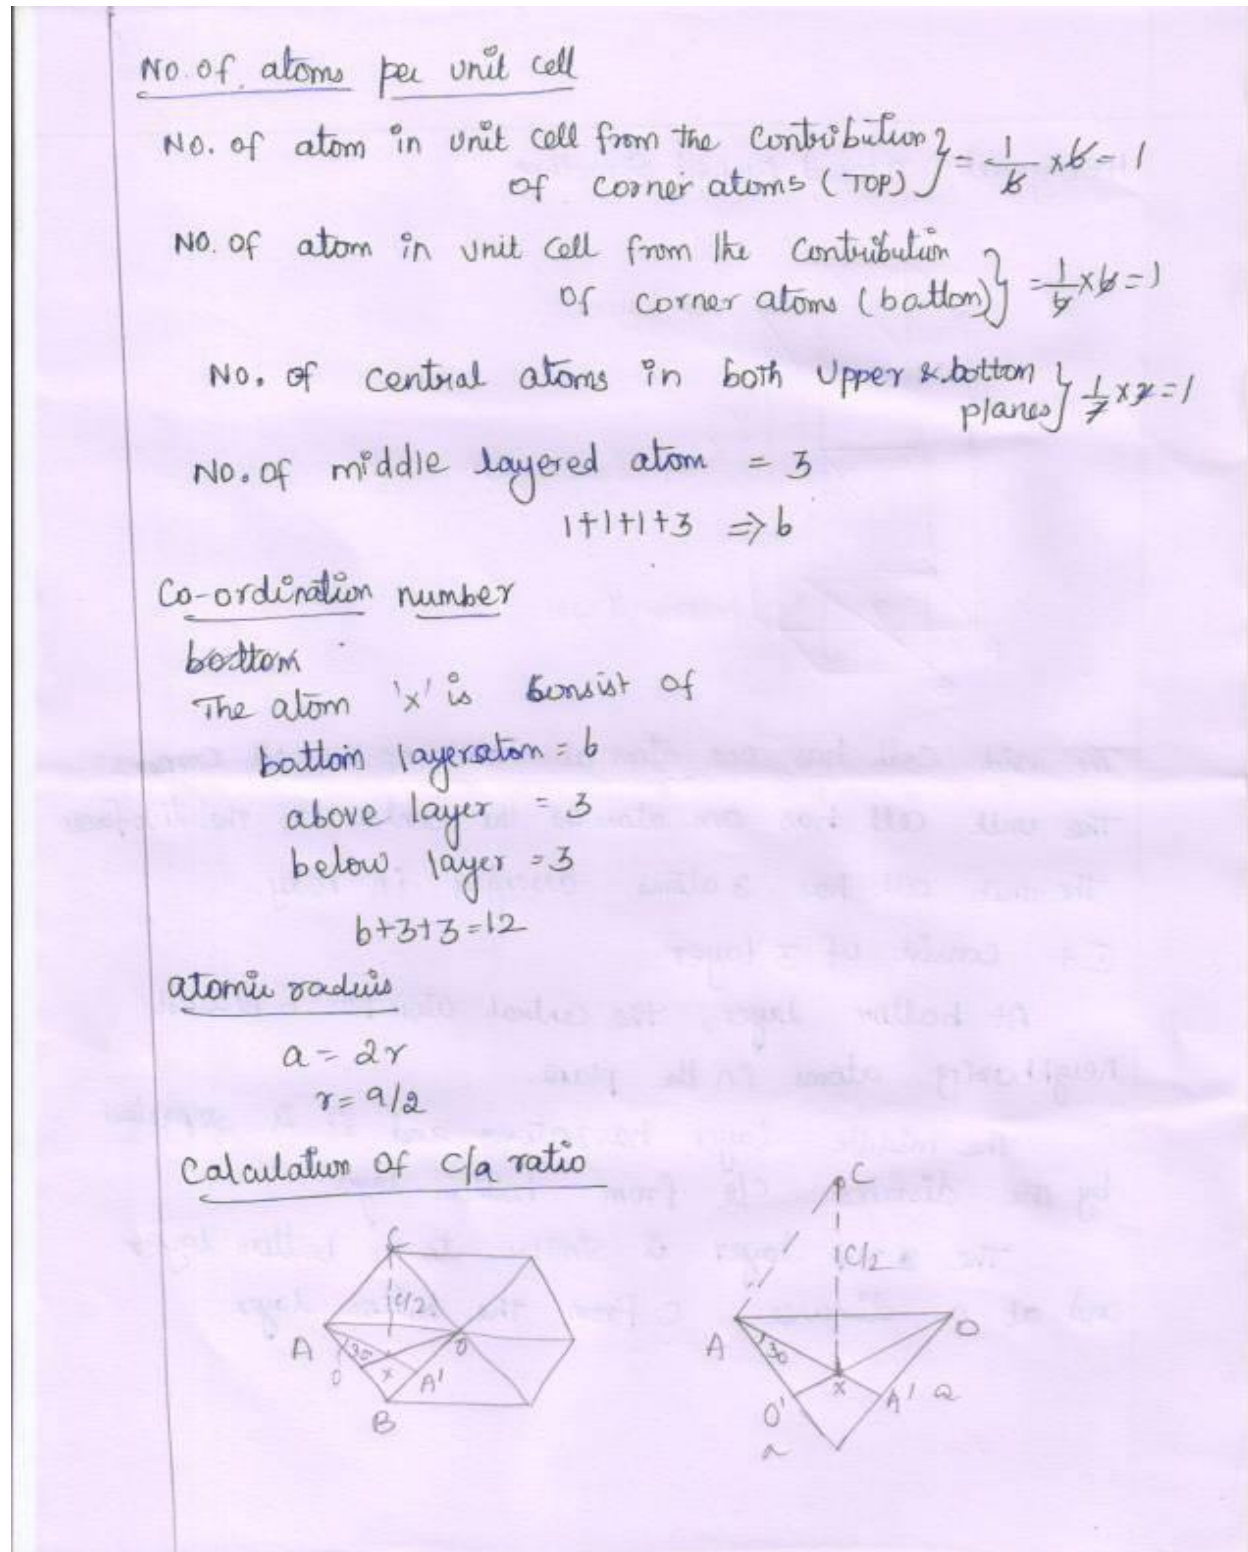 No. of atoms per unit cell
No. of atom in unit cell from the contribution
of corner atoms (TOP) } = 1/6 x 6 = 1
No. of atom in unit cell from the contribution
of corner atoms (battom) } = 1/6 x 6 = 1
No. of central atoms in both Upper & bottom
planes } 1/2 x 2 = 1
No. of middle layered atom = 3
1+1+1+3 => 6
Co-ordination number
bottom
The atom 'x' is consist of
battom layer atom = 6
above layer = 3
below layer = 3
6+3+3=12
atomic radius
a = 2r
r = a/2
Calculation of c/a ratio
C
C
C/2
C/2
A
30
O
A
30
O
O
x
A'
x
B
O'
A'
a
a